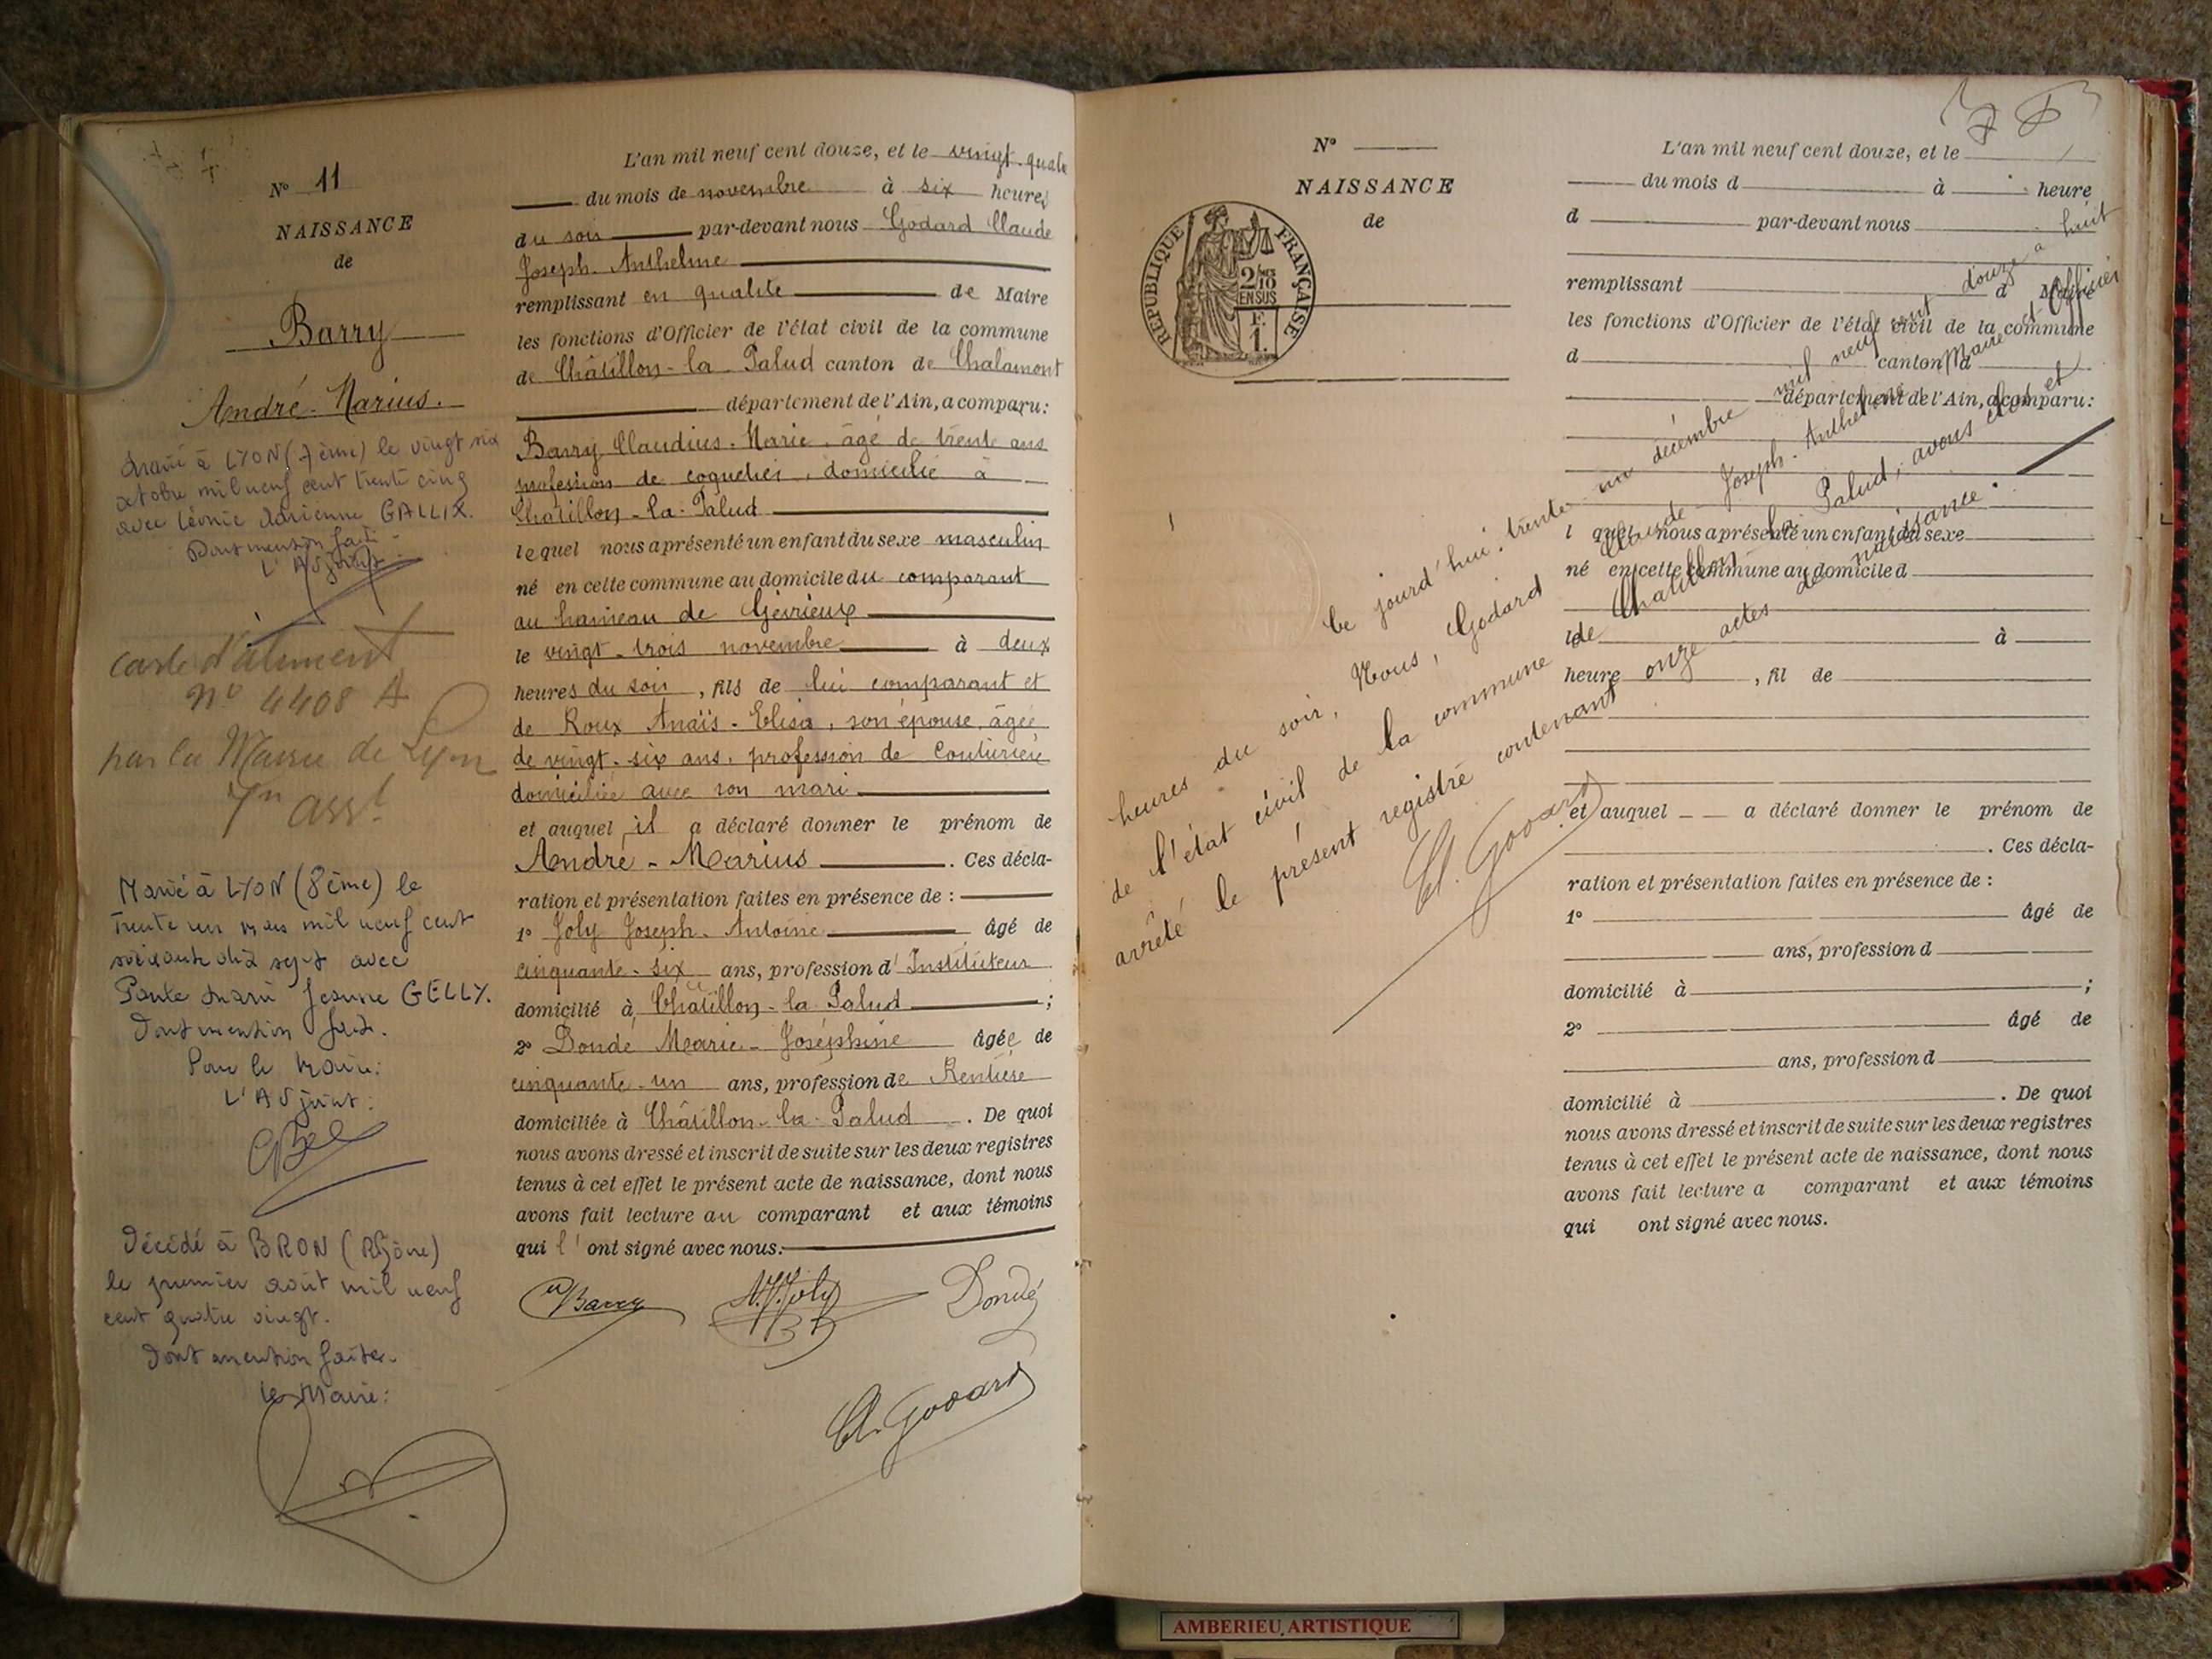 N° 11
NAISSANCE
de
Barry
André-Marius.
Marié à LYON (7ème) le vingt six
octobre mil neuf cent trente cinq
avec Léonie Adrienne GALLIX.
Dont mention faite
L'Adjoint
carte d'aliment
N° 4408 A
par la Mairie de Lyon
7n arrt
Marié à LYON (8ème) le
trente un mars mil neuf cent
soixante dix sept avec
Paule Marie Jeanne GELLY.
Dont mention faite.
Pour le Maire:
L'Adjoint:
Décédé à BRON (Rhône)
le premier août mil neuf
cent quatre vingt.
Dont mention faite.
Le Maire:
L'an mil neuf cent douze, et le vingt-quatre
du mois de novembre à six heures
du soir par-devant nous Godard Claude
Joseph-Anthelme
remplissant en qualité de Maire
les fonctions d'Officier de l'état civil de la commune
de Châtillon-la-Palud canton de Chalamont
département de l'Ain, a comparu:
Barry Claudius-Marie, âgé de trente ans
profession de coquetier, domicilié à
Châtillon-la-Palud
lequel nous a présenté un enfant du sexe masculin
né en cette commune au domicile du comparant
au hameau de Gévrieux
le vingt-trois novembre à deux
heures du soir, fils de lui comparant et
de Roux Anaïs-Elisa, son épouse, âgée
de vingt-six ans, profession de Couturière
domiciliée avec son mari
et auquel il a déclaré donner le prénom de
André-Marius. Ces décla-
ration et présentation faites en présence de :
1° Joly Joseph-Antoine âgé de
cinquante-six ans, profession d'Instituteur
domicilié à Châtillon-la-Palud ;
2° Dondé Marie-Joséphine âgée de
cinquante-un ans, profession de Rentière
domiciliée à Châtillon-la-Palud. De quoi
nous avons dressé et inscrit de suite sur les deux registres
tenus à cet effet le présent acte de naissance, dont nous
avons fait lecture au comparant et aux témoins
qui l'ont signé avec nous.
Barry Joly Dondé
Cl. Godard
N°
NAISSANCE
de
REPUBLIQUE FRANÇAISE
2/10 EN SUS
F. 1.
L'an mil neuf cent douze, et le
du mois d à heure
d par-devant nous
remplissant d Maire
les fonctions d'Officier de l'état civil de la commune
d canton d
département de l'Ain, a comparu:
l quel nous a présenté un enfant du sexe
né en cette commune au domicile d
le à
heure , fil de
et auquel a déclaré donner le prénom de
. Ces décla-
ration et présentation faites en présence de :
1° âgé de
ans, profession d
domicilié à ;
2° âgé de
ans, profession d
domicilié à . De quoi
nous avons dressé et inscrit de suite sur les deux registres
tenus à cet effet le présent acte de naissance, dont nous
avons fait lecture a comparant et aux témoins
qui ont signé avec nous.
Ce jourd'hui, trente-un décembre mil neuf cent douze à huit
heures du soir, Nous, Godard Claude-Joseph-Anthelme Maire et Officier
de l'état civil de la commune de Châtillon-la-Palud, avons clos et
arrêté le présent registre contenant onze actes de naissance.
Cl. Godard
AMBERIEU ARTISTIQUE